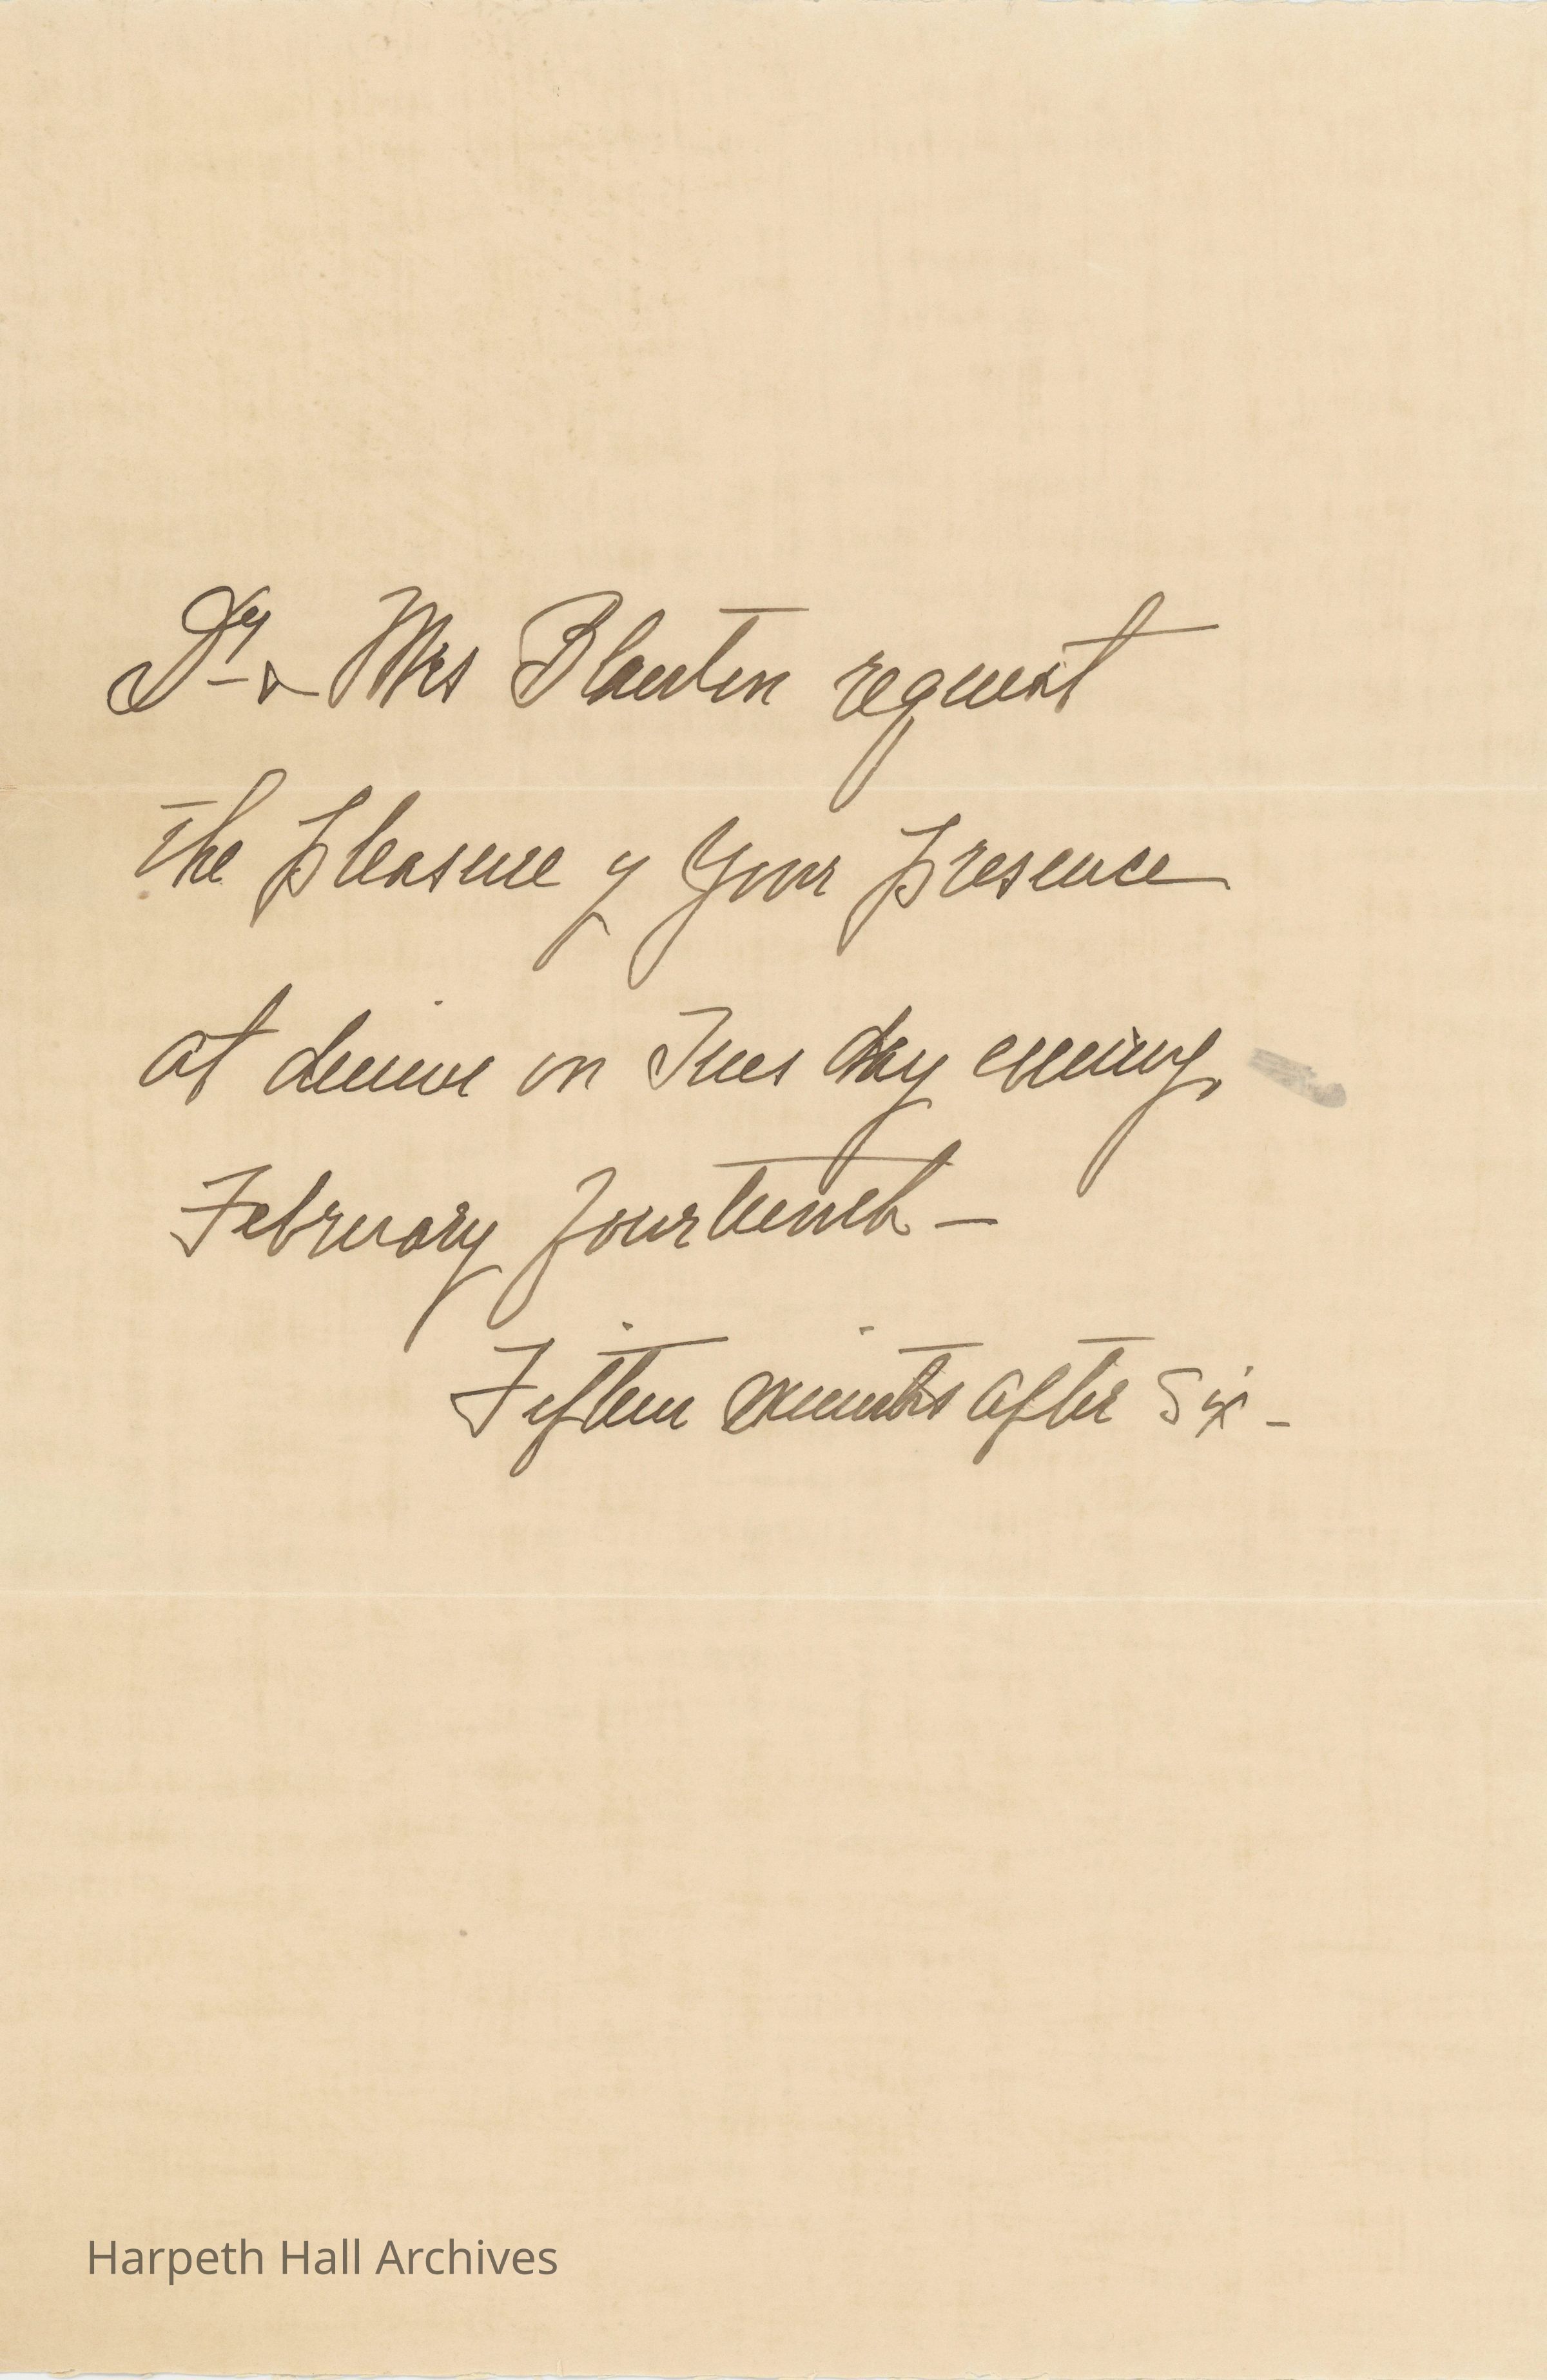 Dr & Mrs Blanton request
the pleasure of your presence
at dinner on Tuesday evening,
February fourteenth –
Fifteen minutes after six –
Harpeth Hall Archives